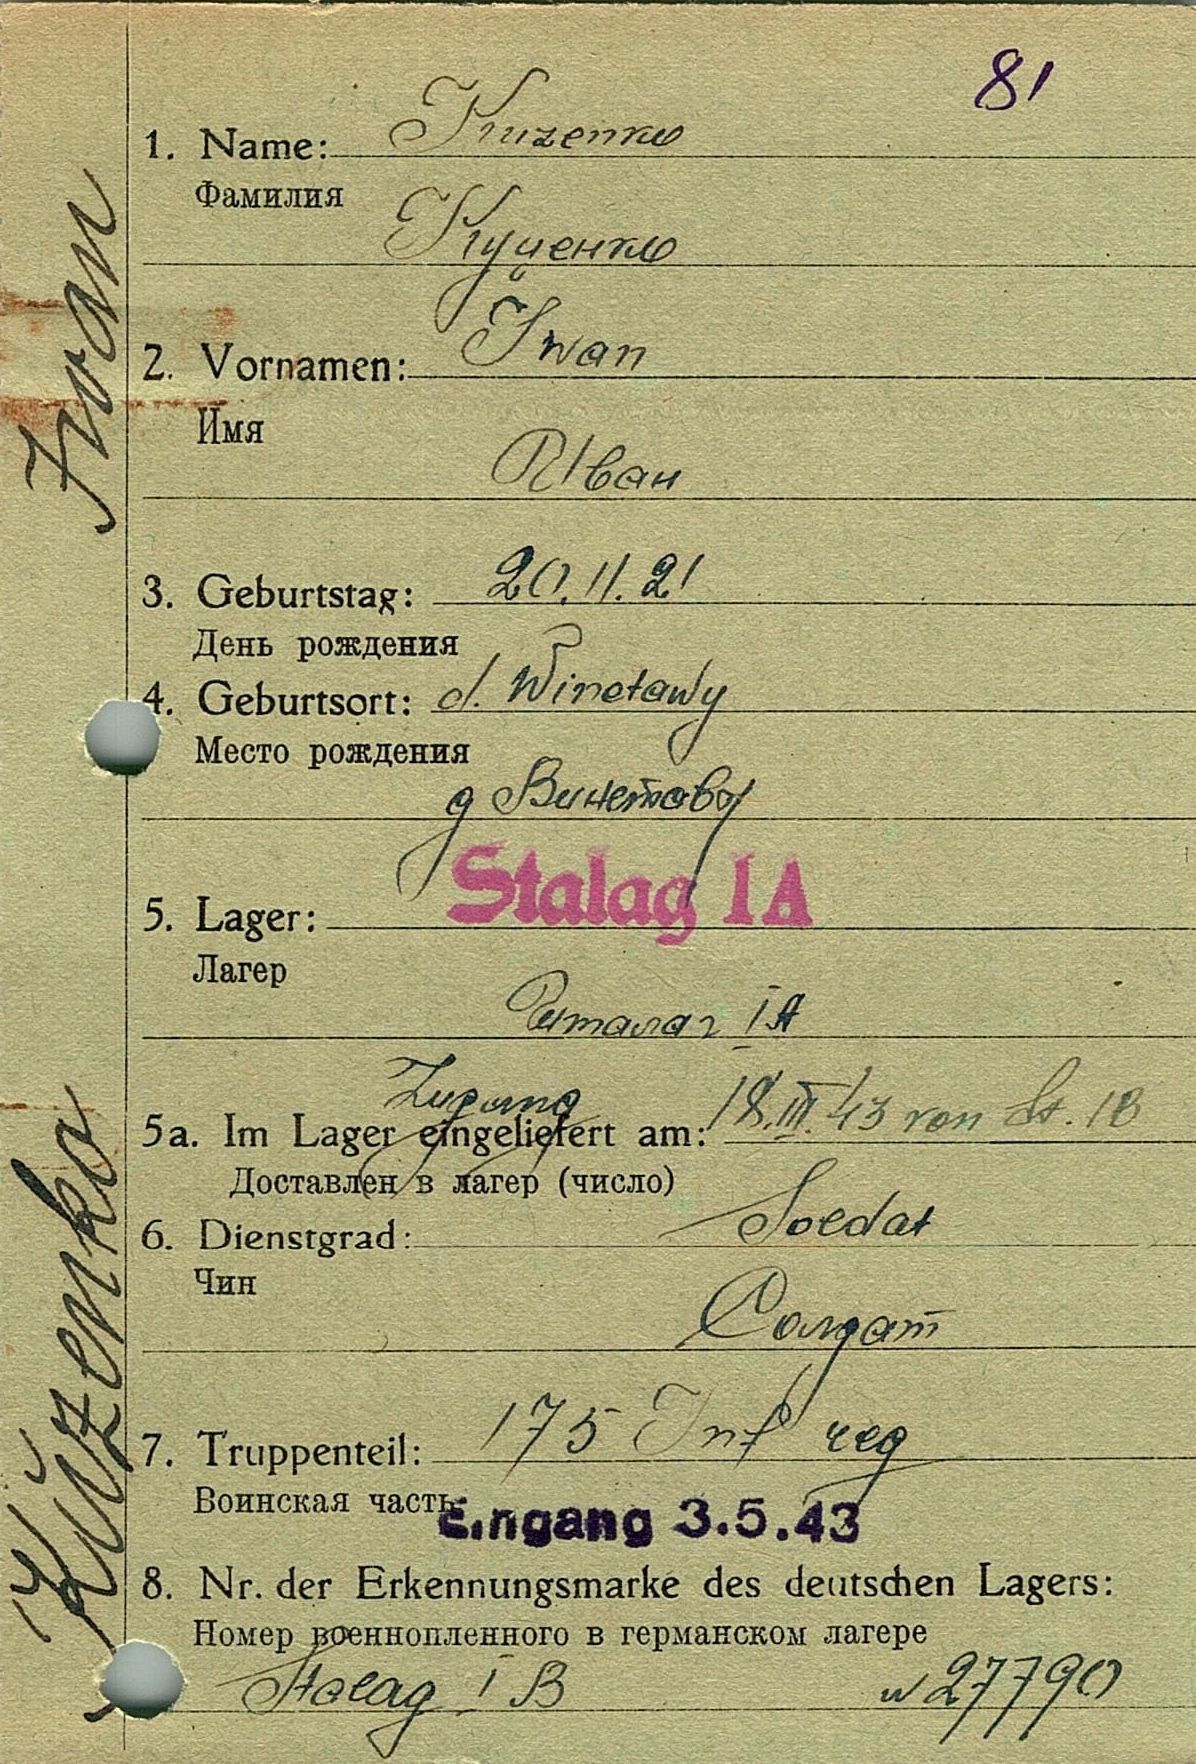 81
1. Name: Kuzenko
Фамилия
Куценко
2. Vornamen: Iwan
Имя
Иван
3. Geburtstag: 20.11.21
День рождения
4. Geburtsort: d. Winetawy
Место рождения
д Винетавы
Stalag IA
5. Lager:
Лагер
Шталаг IA
Zugang
5a. Im Lager eingeliefert am: 18.III.43 von St. IB
Доставлен в лагер (число)
6. Dienstgrad: Soldat
Чин
Солдат
7. Truppenteil: 175 Inf reg
Воинская часть
Eingang 3.5.43
8. Nr. der Erkennungsmarke des deutschen Lagers:
Номер военнопленного в германском лагере
Stalag IB N 27790
Kuzenko Iwan